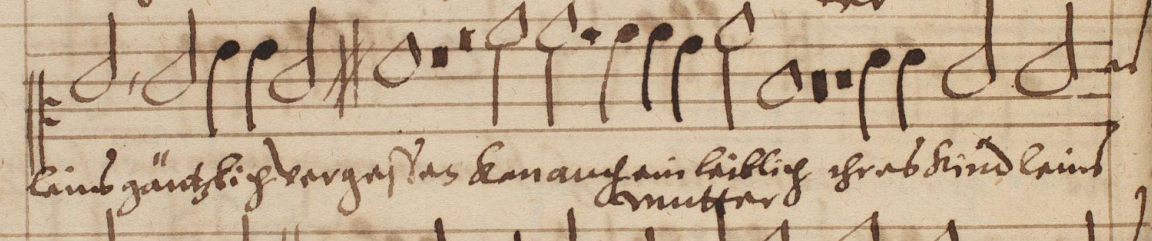 leins gäntzlich vergessen Kan auch ein leiblich ihres Kind leins
mutter